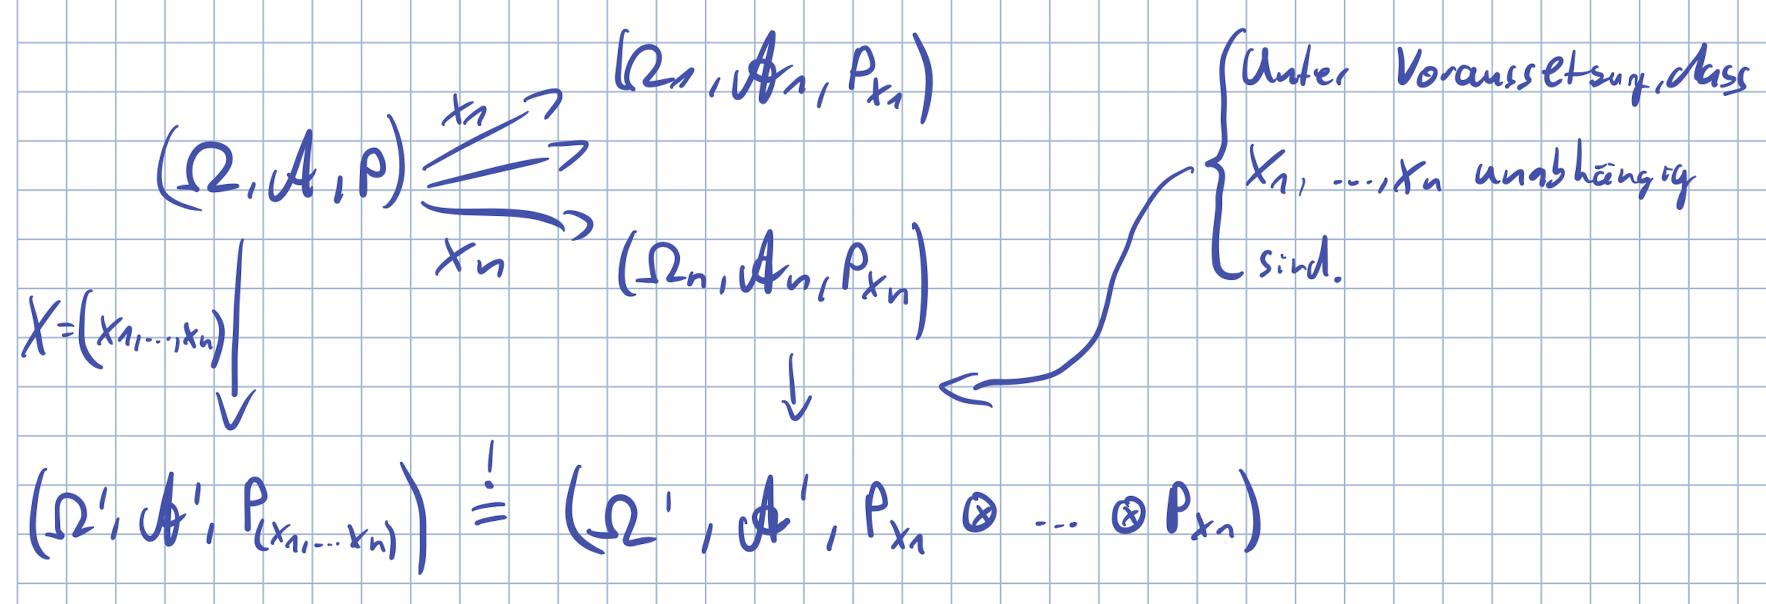 (Ω, 𝒜, P)
X₁
Xₙ
(Ω₁, 𝒜₁, P_X₁)
(Ωₙ, 𝒜ₙ, P_Xₙ)
{ Unter Voraussetzung, dass
X₁, ..., Xₙ unabhängig
sind.
X=(X₁,...,Xₙ)
(Ω', 𝒜', P_(X₁,...Xₙ)) =! (Ω', 𝒜', P_X₁ ⊗ ... ⊗ P_Xₙ)